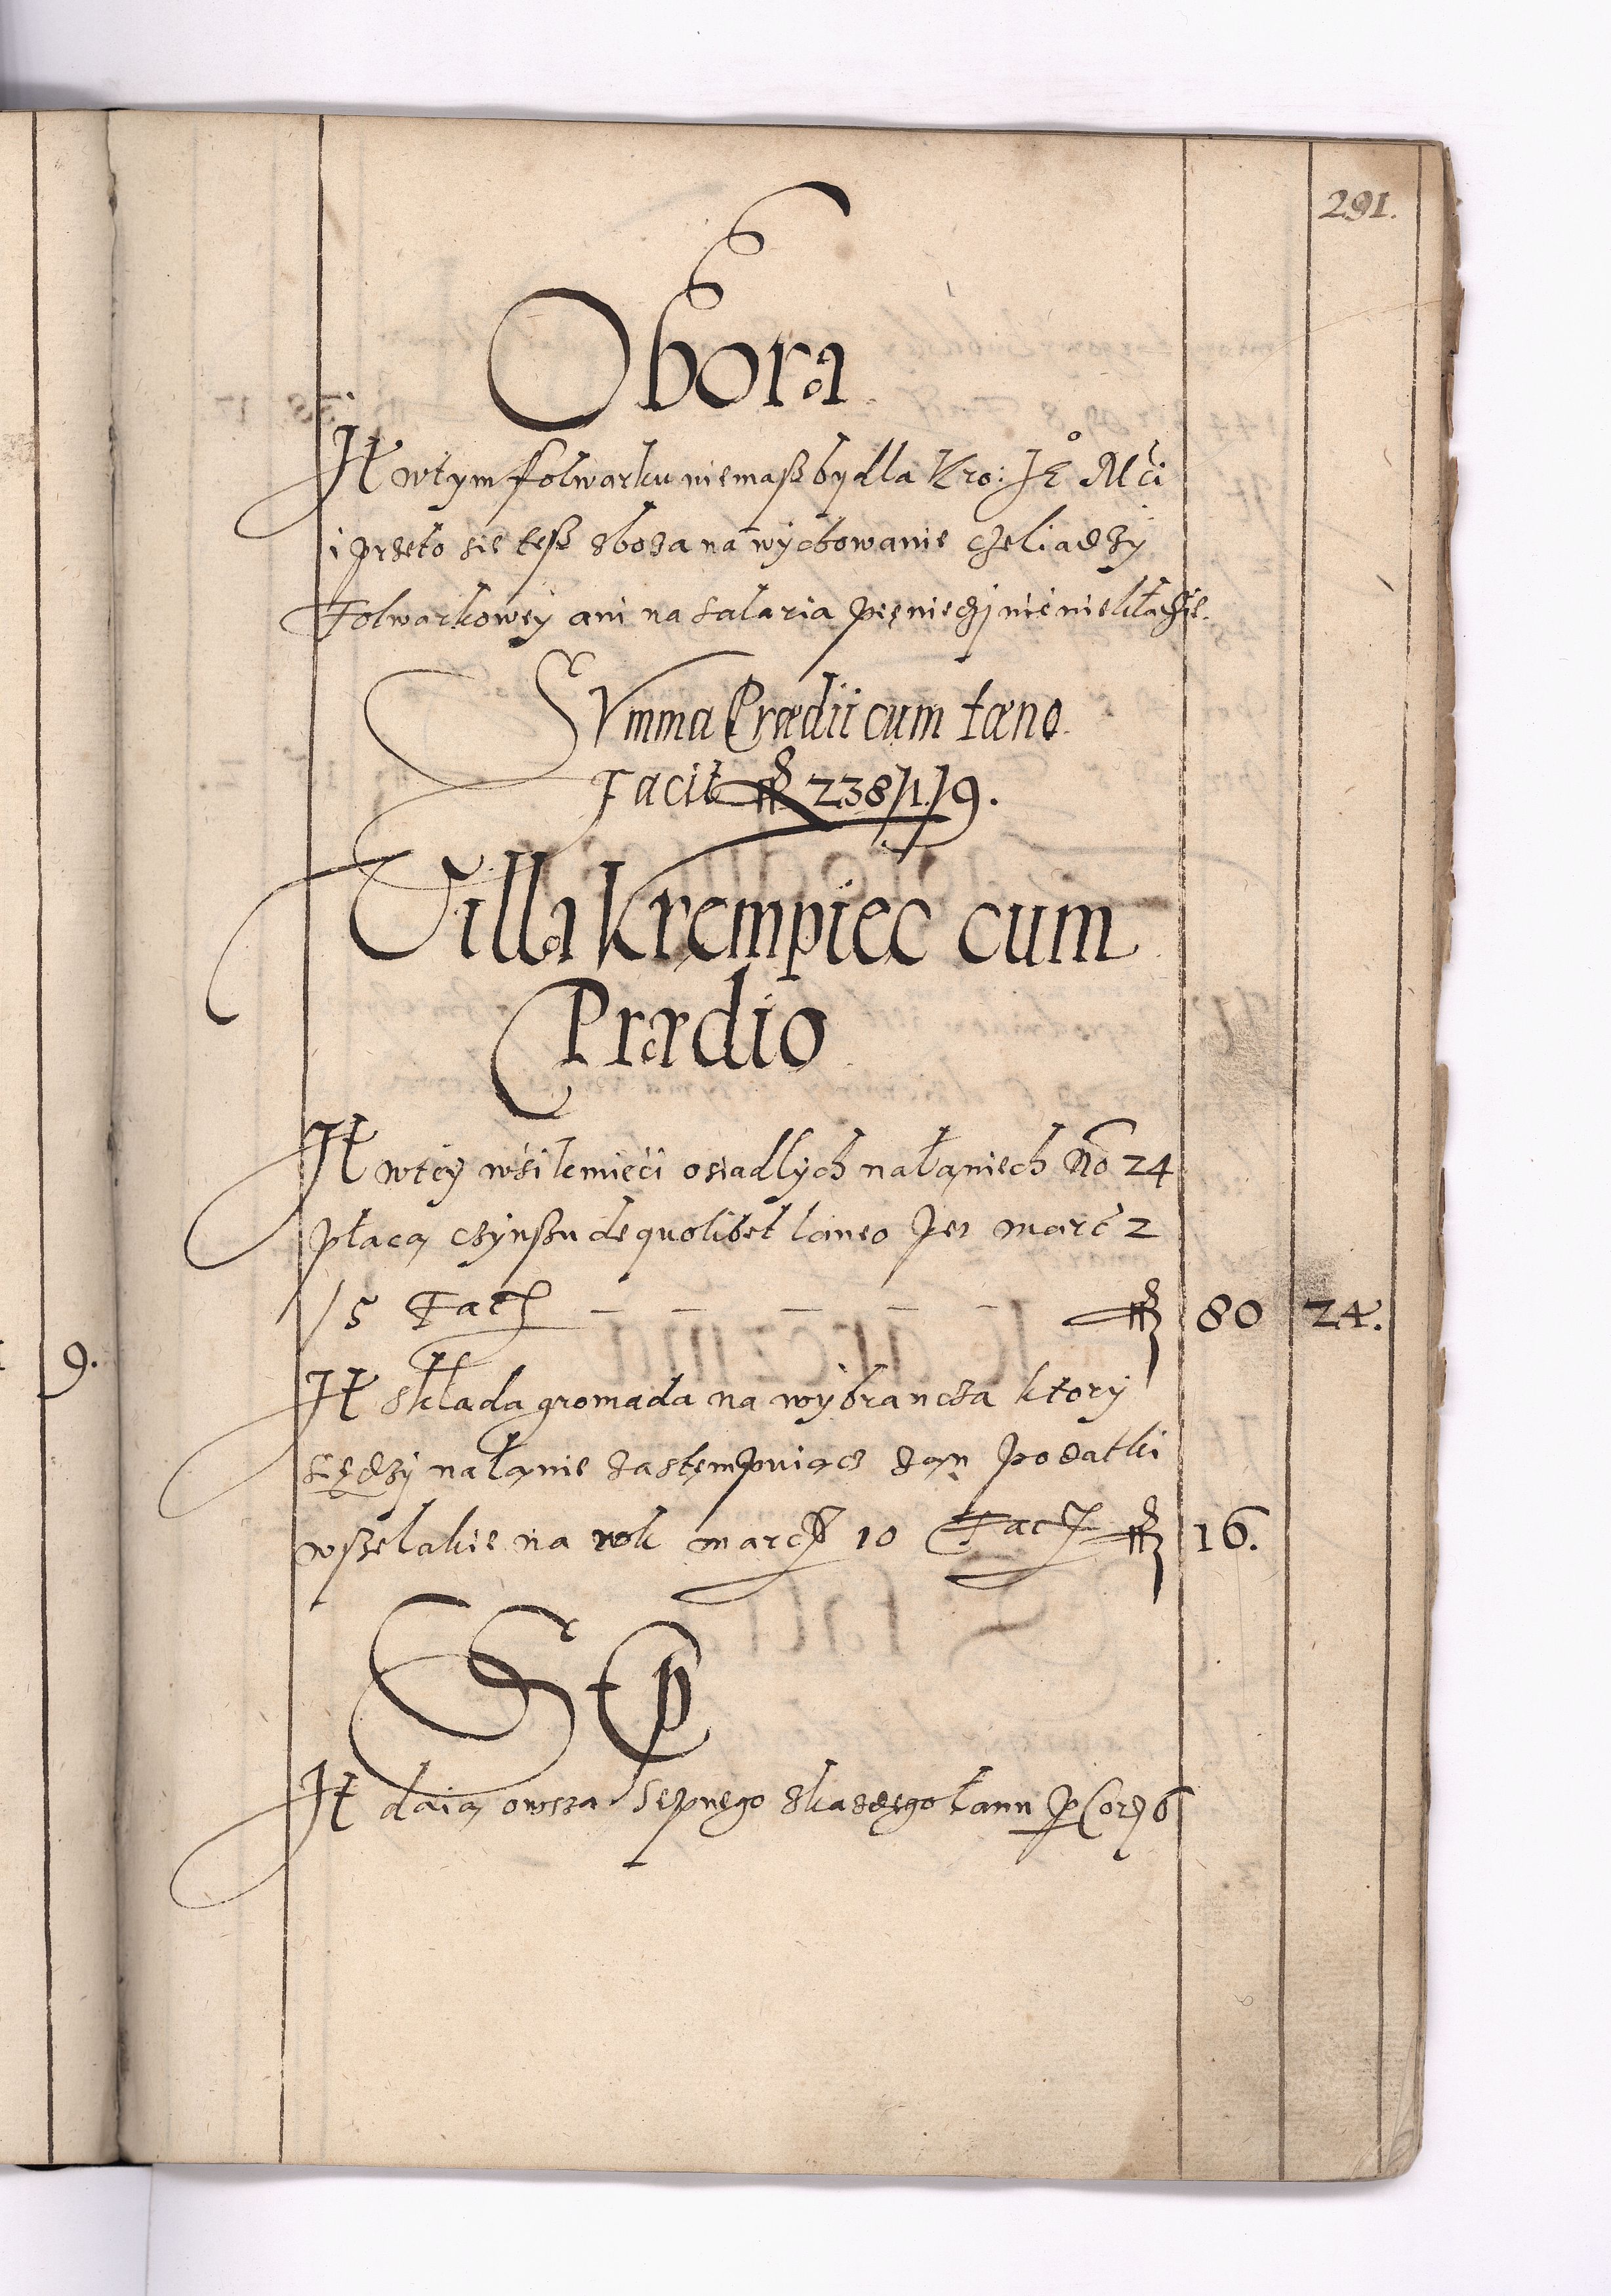 291.
Obora
It wtym folwarku niemasz bydla Kro: Je° Mći
i przeto sie tesz zboza na wychowanie czeliadzy
Folwarkowey ani na salaria pięniedzj nie niekladzie.
Summa Prædii cum fæno
Facit 238/1/9.
Villa Krempiec cum
Prædio
It wtey wśi kmieći osiadlych nałaniech No 24
płaca czynszu de quolibet laneo per marc 2
/5 Fac 80 24.
9.
It składa gromada na wybrancza ktory
siędzy nałanie zastempuiącz zań podatki
wszelakie na rok marc 10 Fac 16.
Sep
It daią owssa sepnego zkazdego łanu p Cor 6